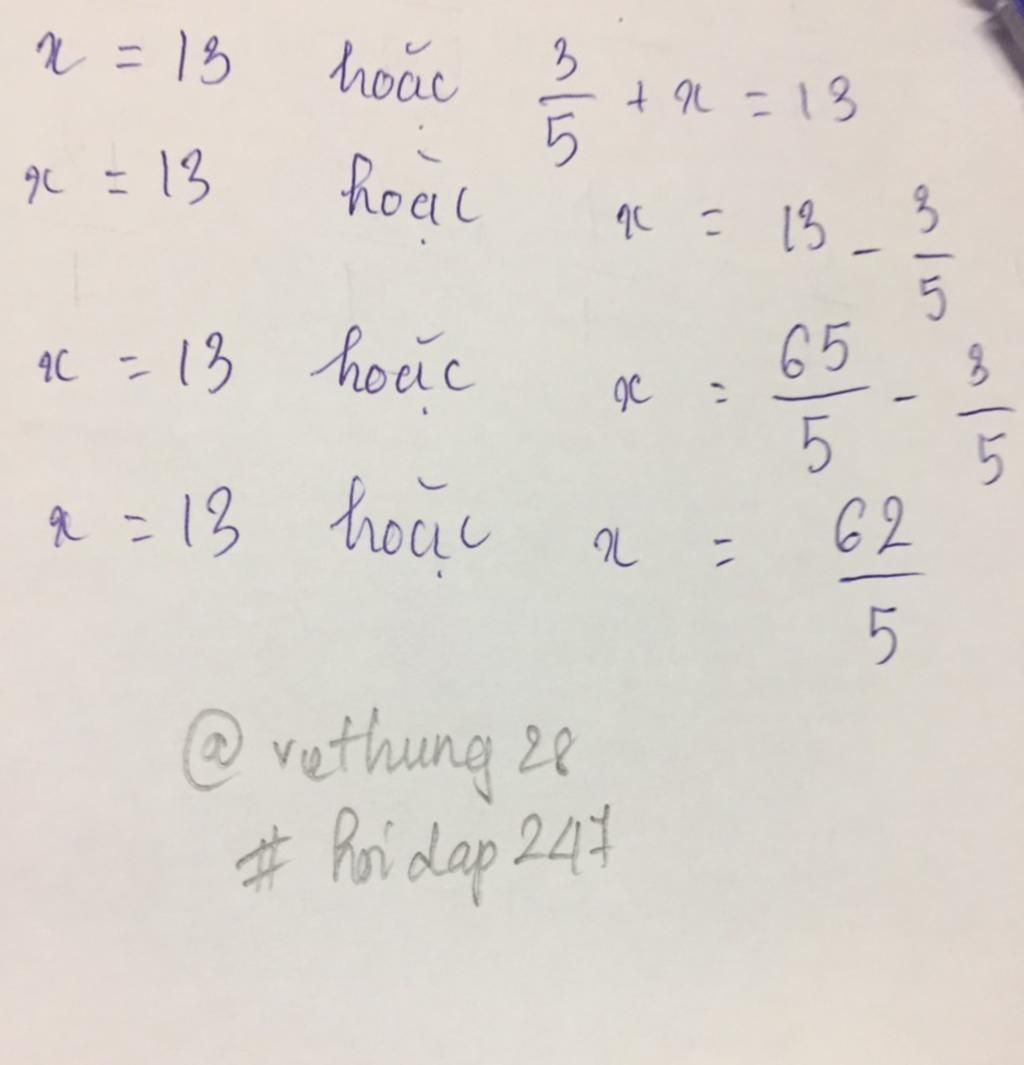 x = 13 hoặc 3/5 + x = 13
x = 13 hoặc x = 13 - 3/5
x = 13 hoặc x = 65/5 - 3/5
x = 13 hoặc x = 62/5
@ vethung 28
# hoi dap 247